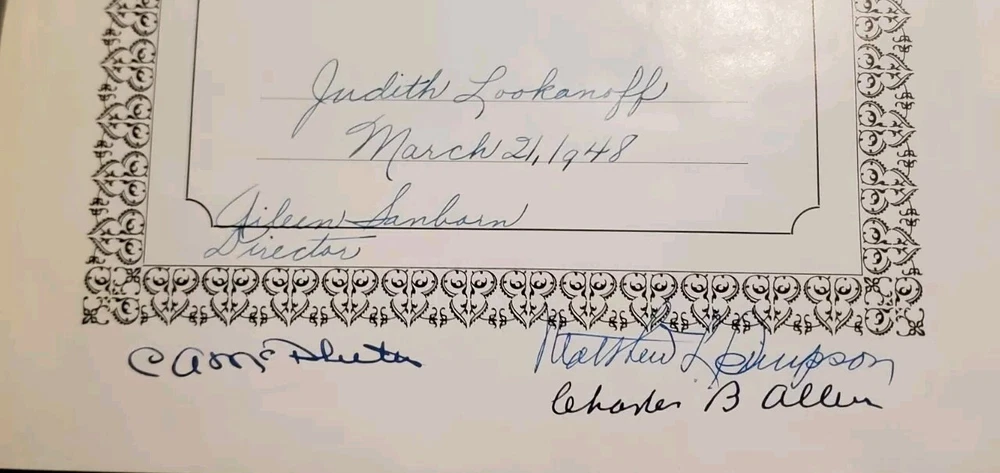 Judith Lookanoff
March 21, 1948
Aileen Sanborn
Director
C A Mc Pheeters
Matthew Simpson
Charles B Allen